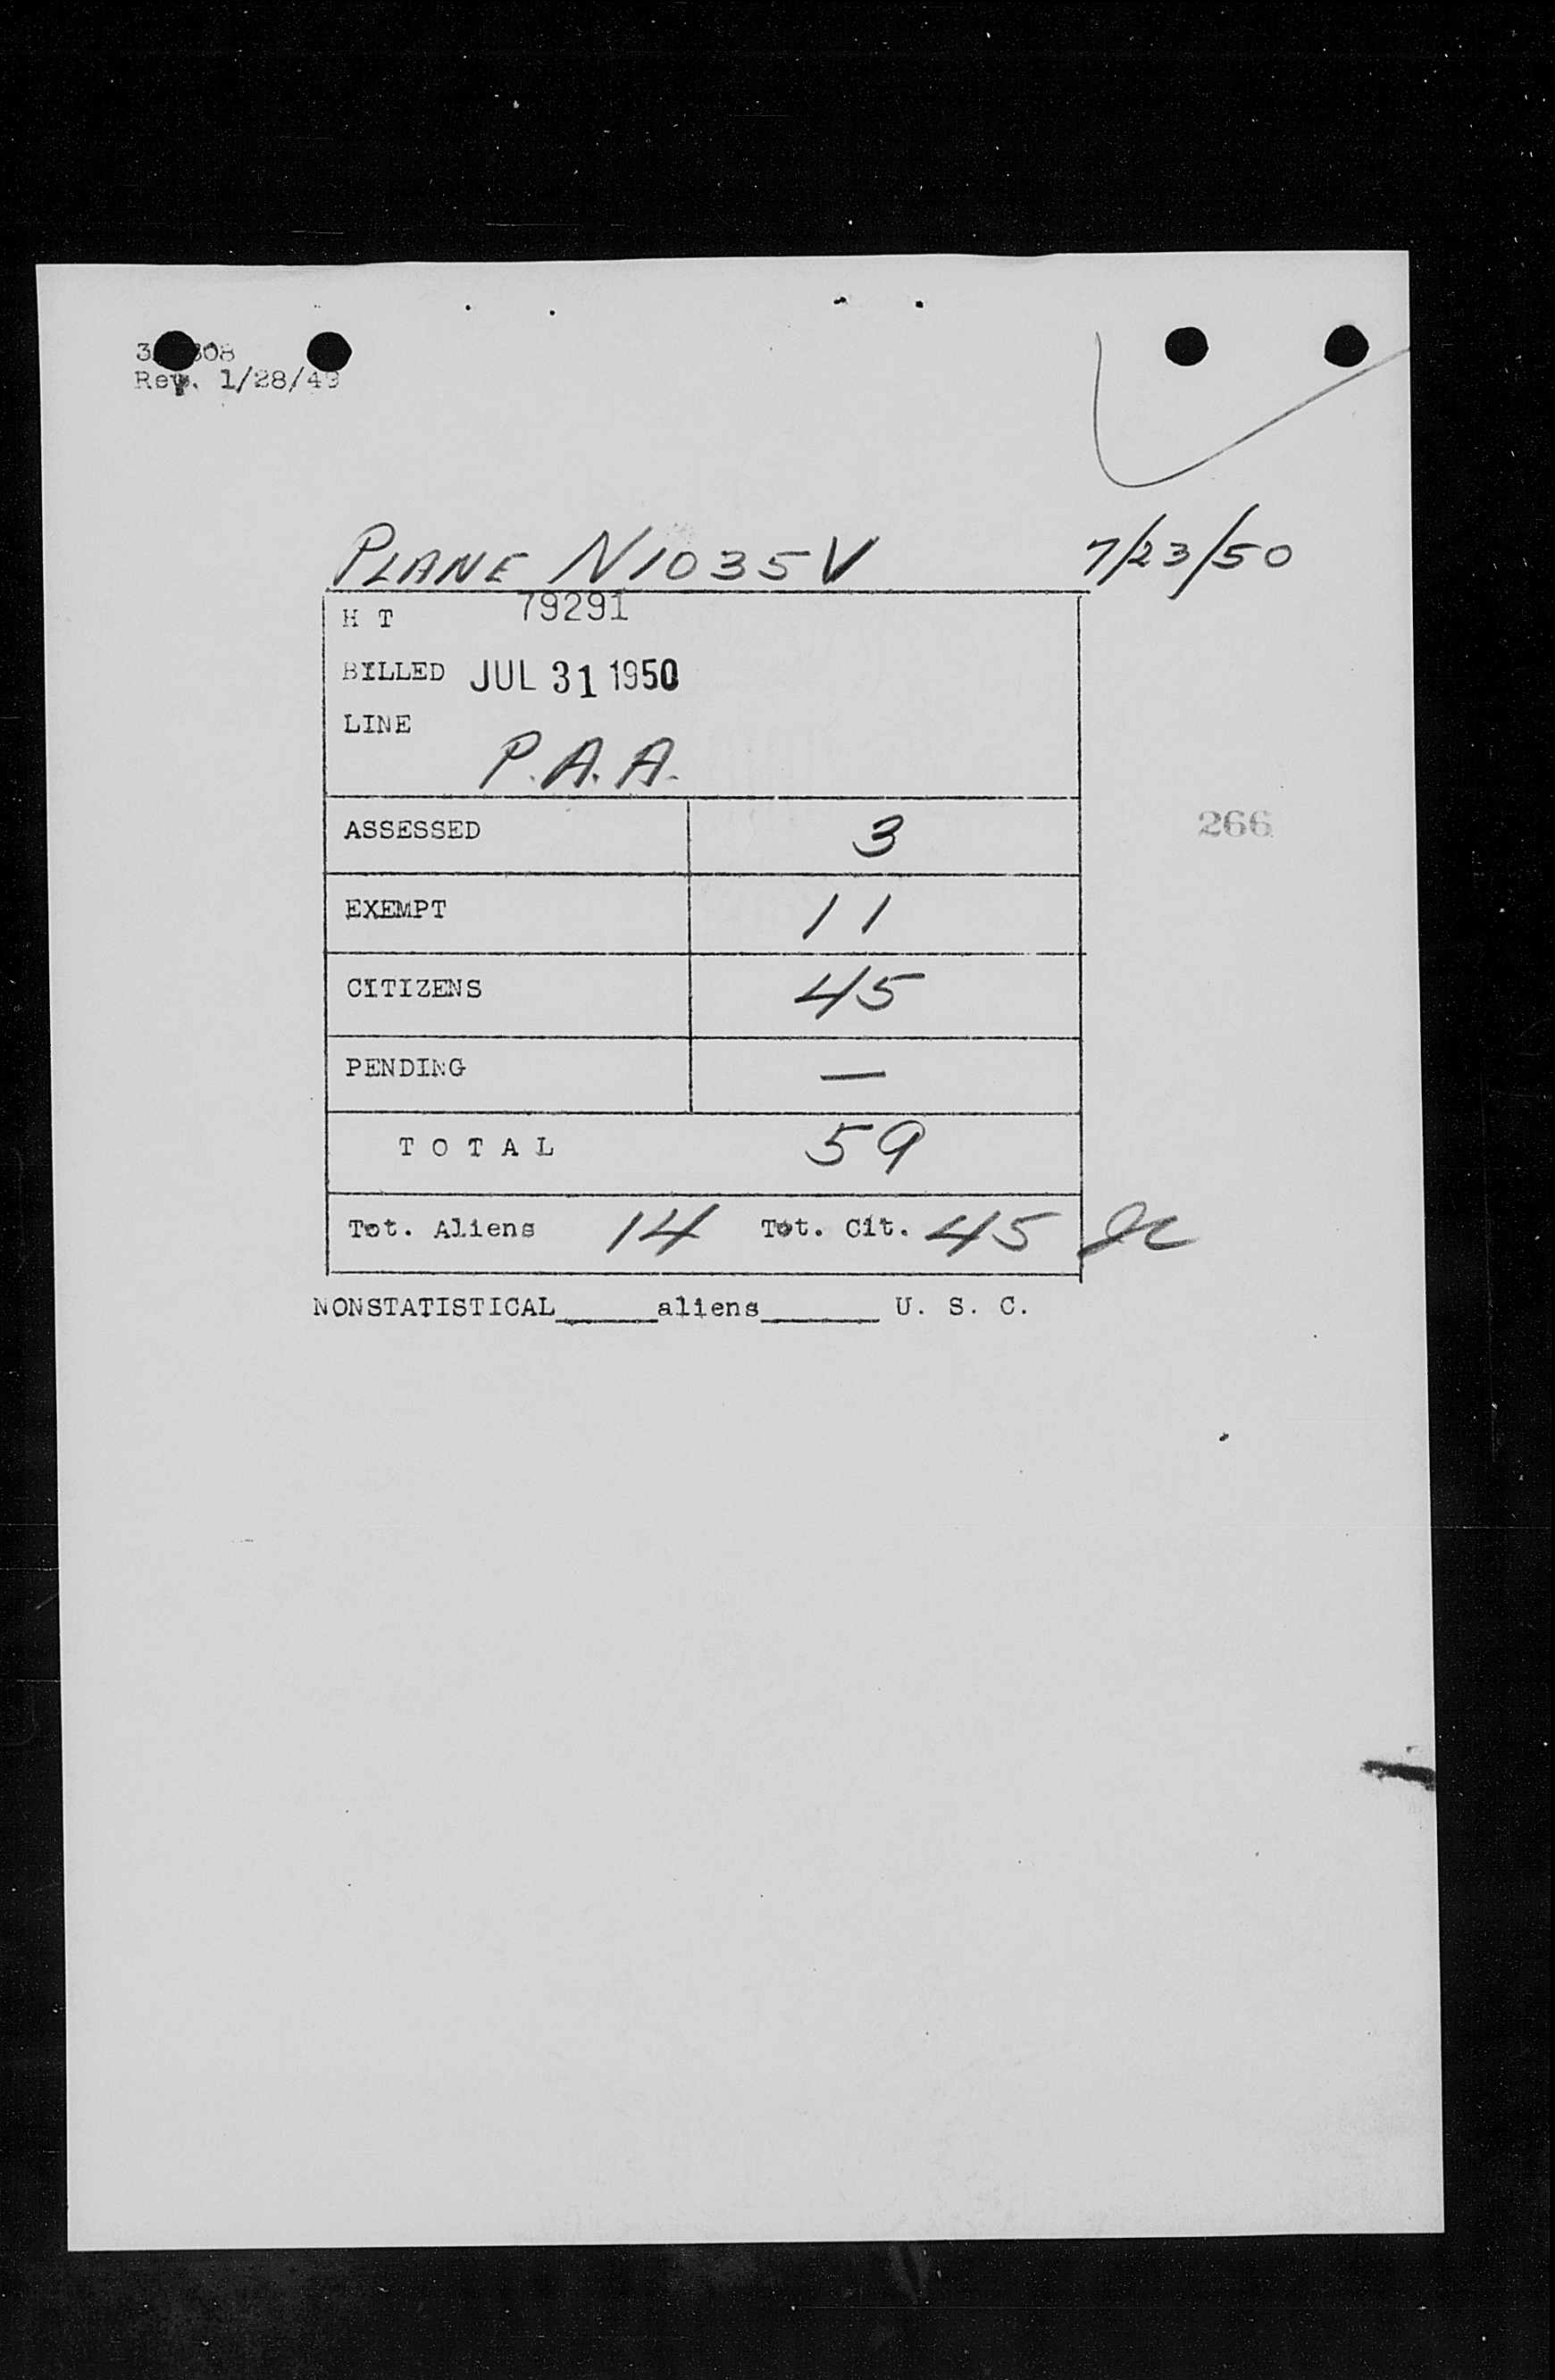 Rev. 1/28/49
PLANE N1035V 7/23/50
H T 79291
BILLED JUL 31 1950
LINE
P.A.A.
ASSESSED 3
266
EXEMPT 11
CITIZENS 45
PENDING —
TOTAL 59
Tot. Aliens 14 Tot. Cit. 45
NONSTATISTICAL_____aliens______ U. S. C.